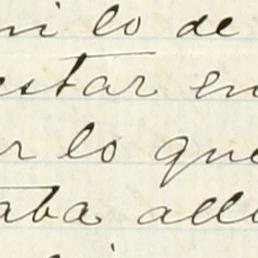 ni lo de
estar en
r lo que
aba alli